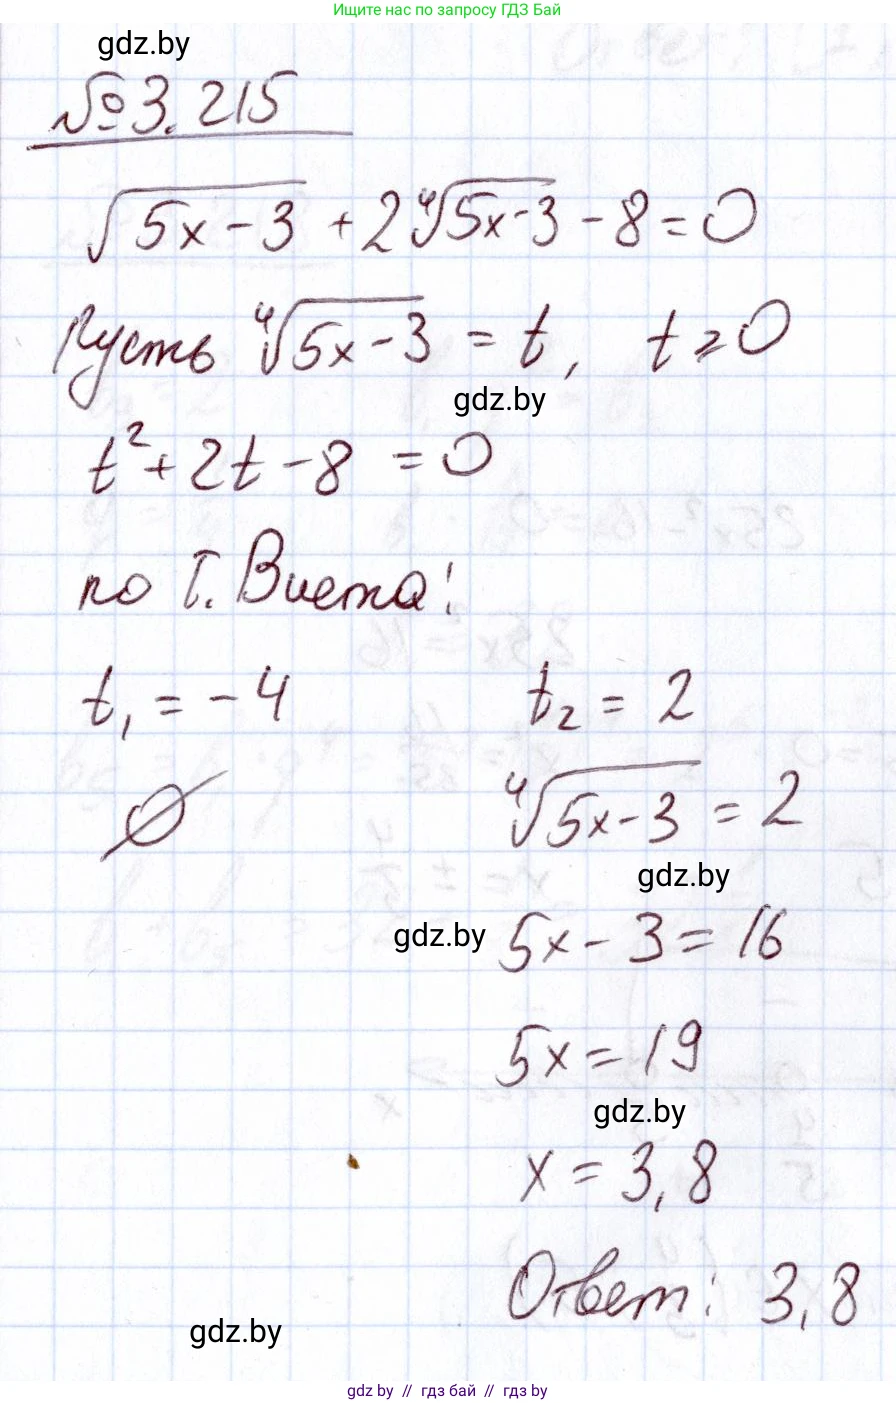 Ищите нас по запросу ГДЗ Бай
gdz.by
№3.215
√(5x-3) + 2∜(5x-3) - 8 = 0
Пусть ∜(5x-3) = t, t ⩾ 0
gdz.by
t² + 2t - 8 = 0
по т. Виета:
t₁ = -4 t₂ = 2
∅ ∜(5x-3) = 2
gdz.by
gdz.by 5x - 3 = 16
5x = 19
gdz.by
x = 3,8
Ответ: 3,8
gdz.by
gdz by // гдз бай // гдз by